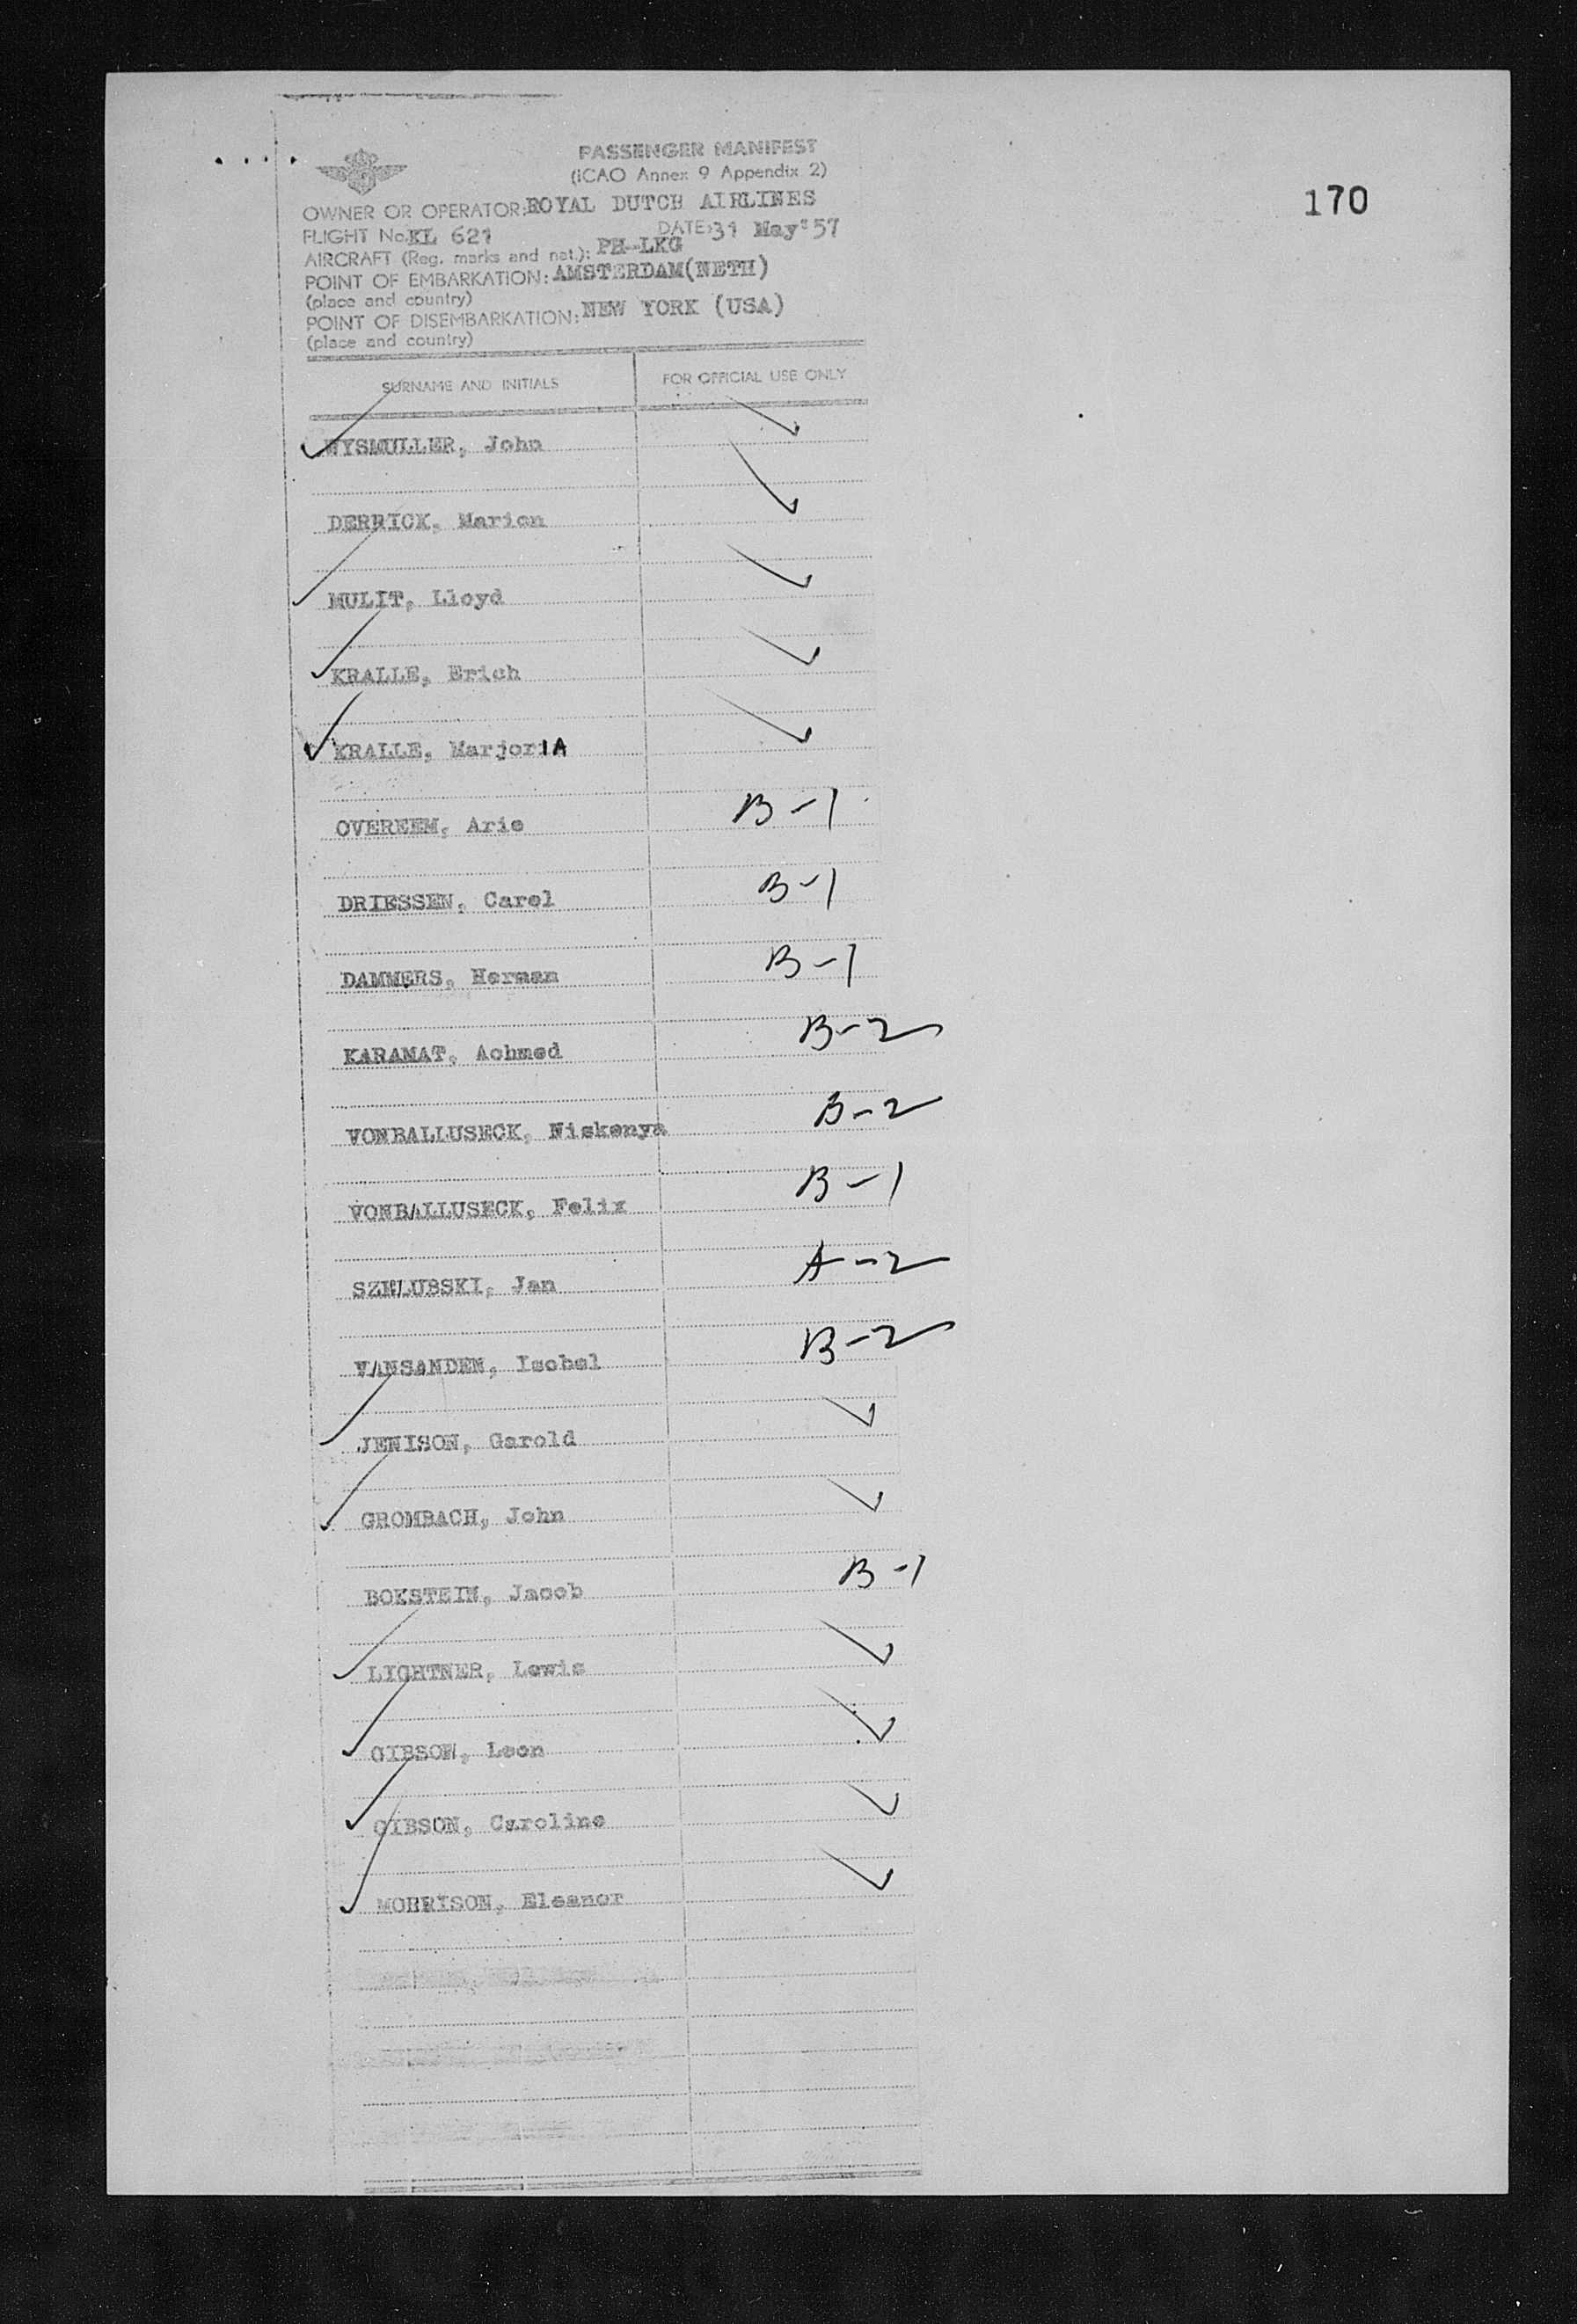 PASSENGER MANIFEST
(ICAO Annex 9 Appendix 2)
170
OWNER OR OPERATOR: ROYAL DUTCH AIRLINES
FLIGHT No. KL 621 DATE: 31 May '57
AIRCRAFT (Reg. marks and nat.): PH-LKG
POINT OF EMBARKATION: AMSTERDAM(NETH)
(place and country)
POINT OF DISEMBARKATION: NEW YORK (USA)
(place and country)
SURNAME AND INITIALS FOR OFFICIAL USE ONLY
WYSMULLER, John
DERRICK, Marion
MULIT, Lloyd
KRALLE, Erich
KRALLE, MarjorIA
OVEREEM, Arie B-1
DRIESSEN, Carel B-1
DAMMERS, Herman B-1
KARAMAT, Achmed B-2
VONBALLUSECK, Niskenya B-2
VONBALLUSECK, Felix B-1
SZELUBSKI, Jan A-2
VANSANDEN, Isobel B-2
JENISON, Garold
GROMBACH, John
BOKSTEIN, Jacob B-1
LIGHTNER, Lewis
GIBSON, Leon
GIBSON, Caroline
MORRISON, Eleanor